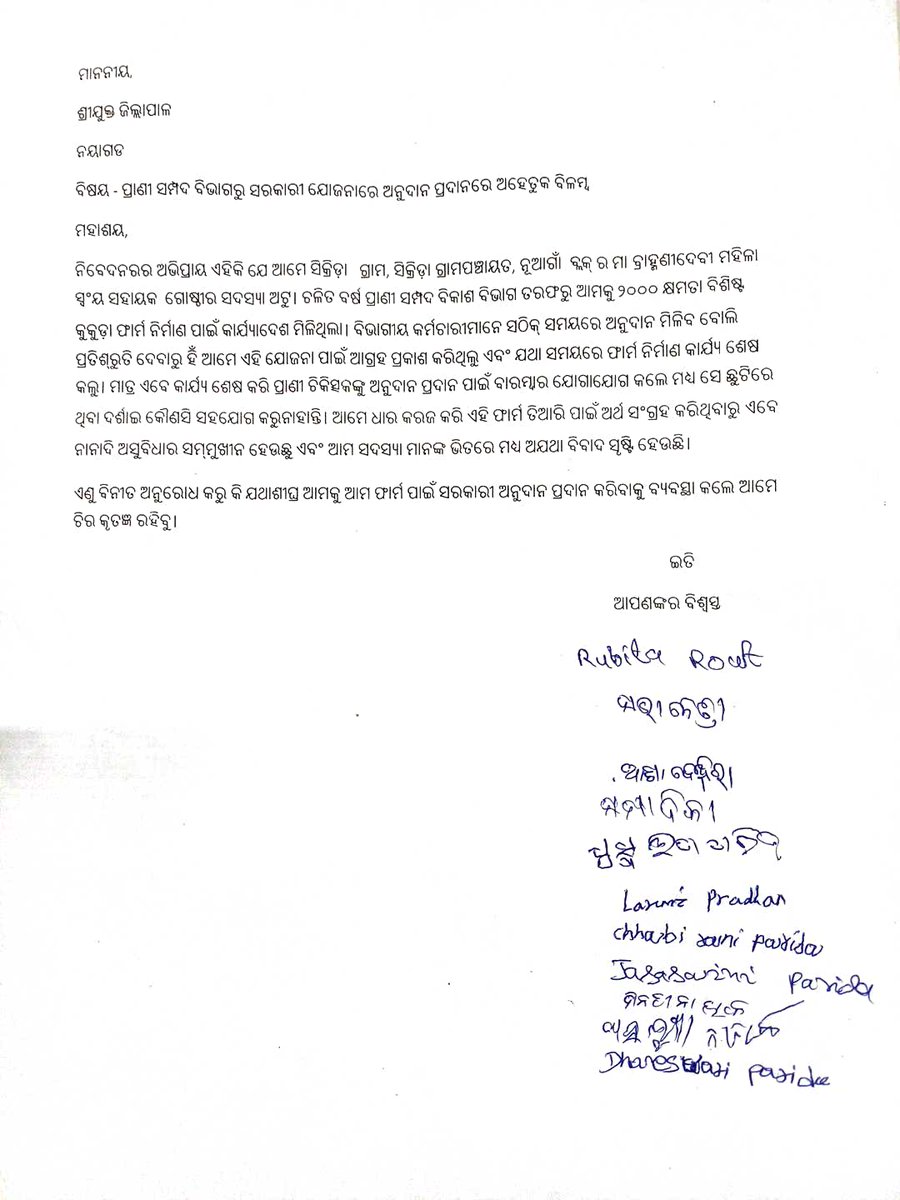 ମାନନୀୟ,
ଶ୍ରୀଯୁକ୍ତ ଜିଲ୍ଲାପାଳ
ନୟାଗଡ
ବିଷୟ - ପ୍ରାଣୀ ସମ୍ପଦ ବିଭାଗରୁ ସରକାରୀ ଯୋଜନାରେ ଅନୁଦାନ ପ୍ରଦାନରେ ଅହେତୁକ ବିଳମ୍ବ
ମହାଶୟ,
ନିବେଦନରର ଅଭିପ୍ରାୟ ଏହିକି ଯେ ଆମେ ସିକ୍ରିଡ଼ା ଗ୍ରାମ, ସିକ୍ରିଡ଼ା ଗ୍ରାମପଞ୍ଚାୟତ, ନୂଆଗାଁ ବ୍ଲକ୍ ର ମା ବ୍ରାହ୍ମଣୀଦେବୀ ମହିଳା
ସ୍ୱଂୟ ସହାୟକ ଗୋଷ୍ଠୀର ସଦସ୍ୟା ଅଟୁ। ଚଳିତ ବର୍ଷ ପ୍ରାଣୀ ସମ୍ପଦ ବିକାଶ ବିଭାଗ ତରଫରୁ ଆମକୁ ୨୦୦୦ କ୍ଷମତା ବିଶିଷ୍ଟ
କୁକୁଡ଼ା ଫାର୍ମ ନିର୍ମାଣ ପାଇଁ କାର୍ଯ୍ୟାଦେଶ ମିଳିଥିଲା। ବିଭାଗୀୟ କର୍ମଚାରୀମାନେ ସଠିକ୍ ସମୟରେ ଅନୁଦାନ ମିଳିବ ବୋଲି
ପ୍ରତିଶ୍ରୁତି ଦେବାରୁ ହିଁ ଆମେ ଏହି ଯୋଜନା ପାଇଁ ଆଗ୍ରହ ପ୍ରକାଶ କରିଥିଲୁ ଏବଂ ଯଥା ସମୟରେ ଫାର୍ମ ନିର୍ମାଣ କାର୍ଯ୍ୟ ଶେଷ
କଲୁ। ମାତ୍ର ଏବେ କାର୍ଯ୍ୟ ଶେଷ କରି ପ୍ରାଣୀ ଚିକିତ୍ସକଙ୍କୁ ଅନୁଦାନ ପ୍ରଦାନ ପାଇଁ ବାରମ୍ବାର ଯୋଗାଯୋଗ କଲେ ମଧ୍ୟ ସେ ଛୁଟିରେ
ଥିବା ଦର୍ଶାଇ କୌଣସି ସହଯୋଗ କରୁନାହାନ୍ତି। ଆମେ ଧାର କରଜ କରି ଏହି ଫାର୍ମ ତିଆରି ପାଇଁ ଅର୍ଥ ସଂଗ୍ରହ କରିଥିବାରୁ ଏବେ
ନାନାଦି ଅସୁବିଧାର ସମ୍ମୁଖୀନ ହେଉଛୁ ଏବଂ ଆମ ସଦସ୍ୟା ମାନଙ୍କ ଭିତରେ ମଧ୍ୟ ଅଯଥା ବିବାଦ ସୃଷ୍ଟି ହେଉଛି।
ଏଣୁ ବିନୀତ ଅନୁରୋଧ କରୁ କି ଯଥାଶୀଘ୍ର ଆମକୁ ଆମ ଫାର୍ମ ପାଇଁ ସରକାରୀ ଅନୁଦାନ ପ୍ରଦାନ କରିବାକୁ ବ୍ୟବସ୍ଥା କଲେ ଆମେ
ଚିର କୃତଜ୍ଞ ରହିବୁ।
ଇତି
ଆପଣଙ୍କର ବିଶ୍ୱସ୍ତ
Rubita Rout
Pradhan
chhabi rani parida
Parida
Dhareswari parida